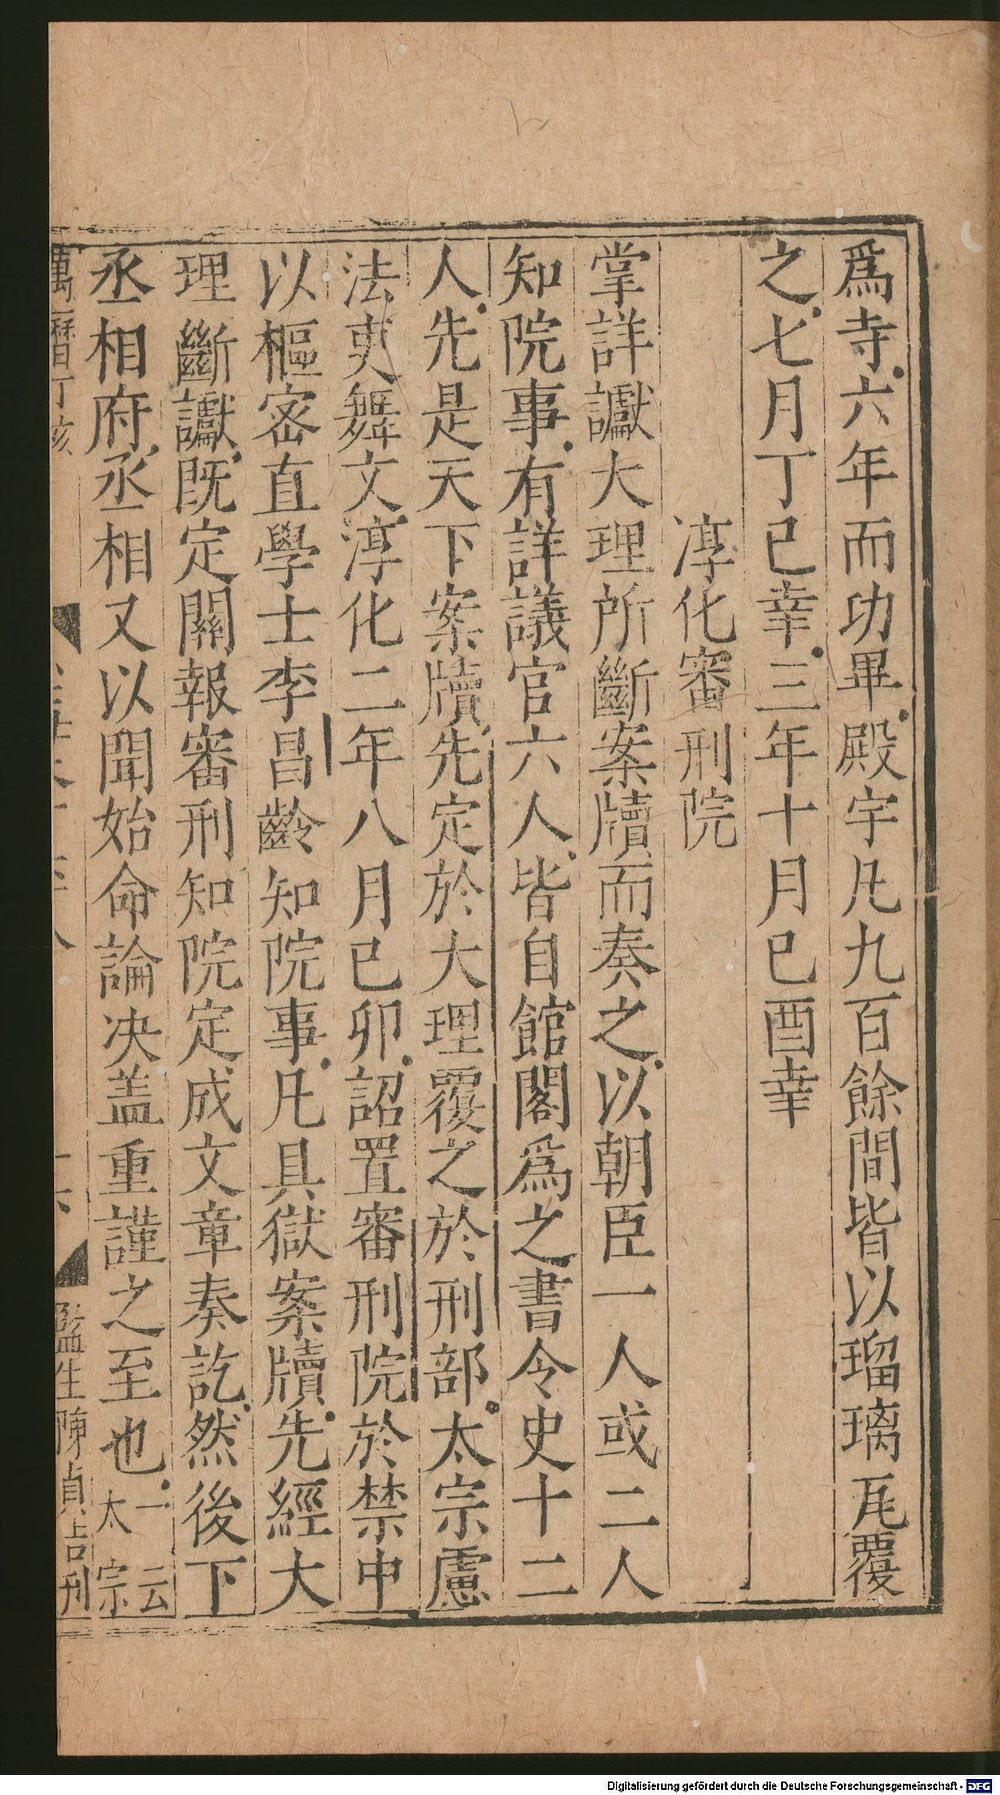 爲寺六年而功畢殿宇凡九百餘間皆以瑠璃瓦覆
之七月丁巳幸三年十月巳酉幸
淳化審刑院
掌詳讞大理所斷案牘而奏之以朝臣一人或二人
知院事有詳議官六人皆自館閣爲之書令史十二
人先是天下案牘先定於大理覆之於刑部太宗慮
法吏舞文淳化二年八月已卯詔置審刑院於禁中
以樞密直學士李昌齡知院事凡具獄案牘先經大
理斷讞既定關報審刑知院定成文章奏訖然後下
丞相府丞相又以聞始命論决盖重謹之至也一云
太宗
萬曆丁亥
十六
監生陳貞吉刊
Digitalisierung gefördert durch die Deutsche Forschungsgemeinschaft - DFG